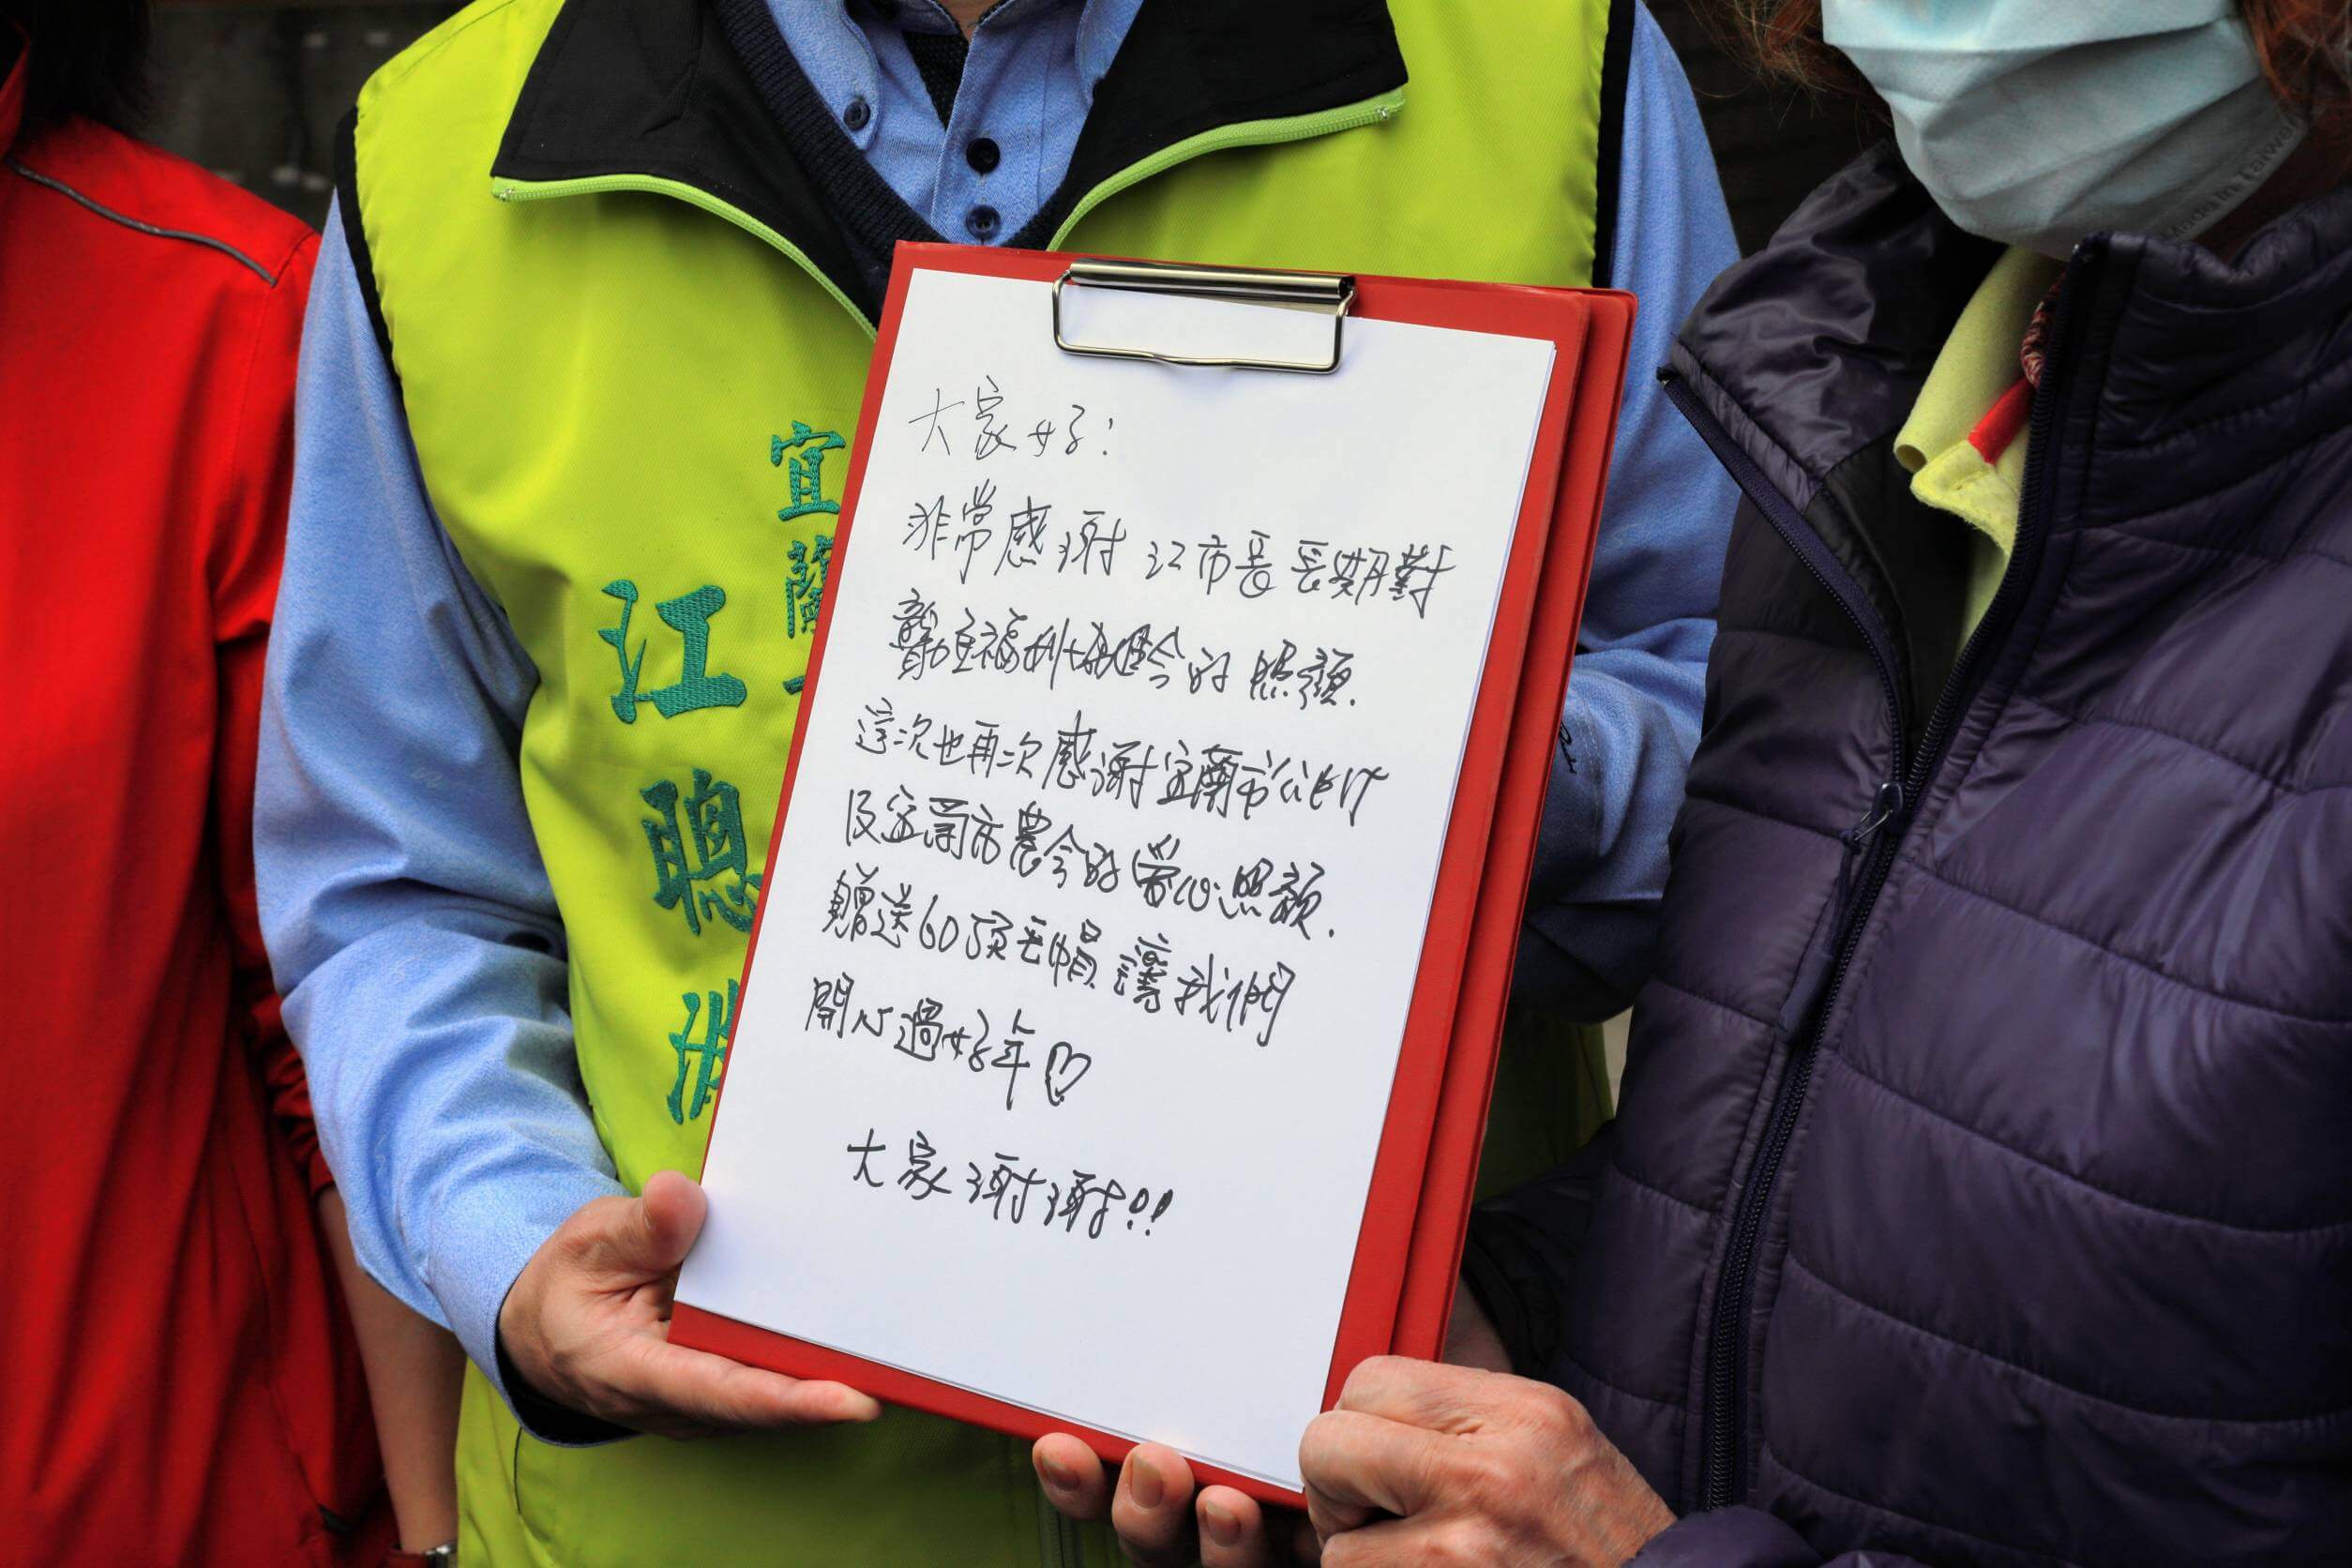 大家好:
非常感謝 江市長長期對
聾啞福利協進會的照顧.
這次也再次感謝宜蘭市公所
及宜蘭市農會的愛心照顧.
贈送60頂毛帽讓我們
開心過好年♡
大家謝謝!!
宜蘭
江聰
Made in Taiwan